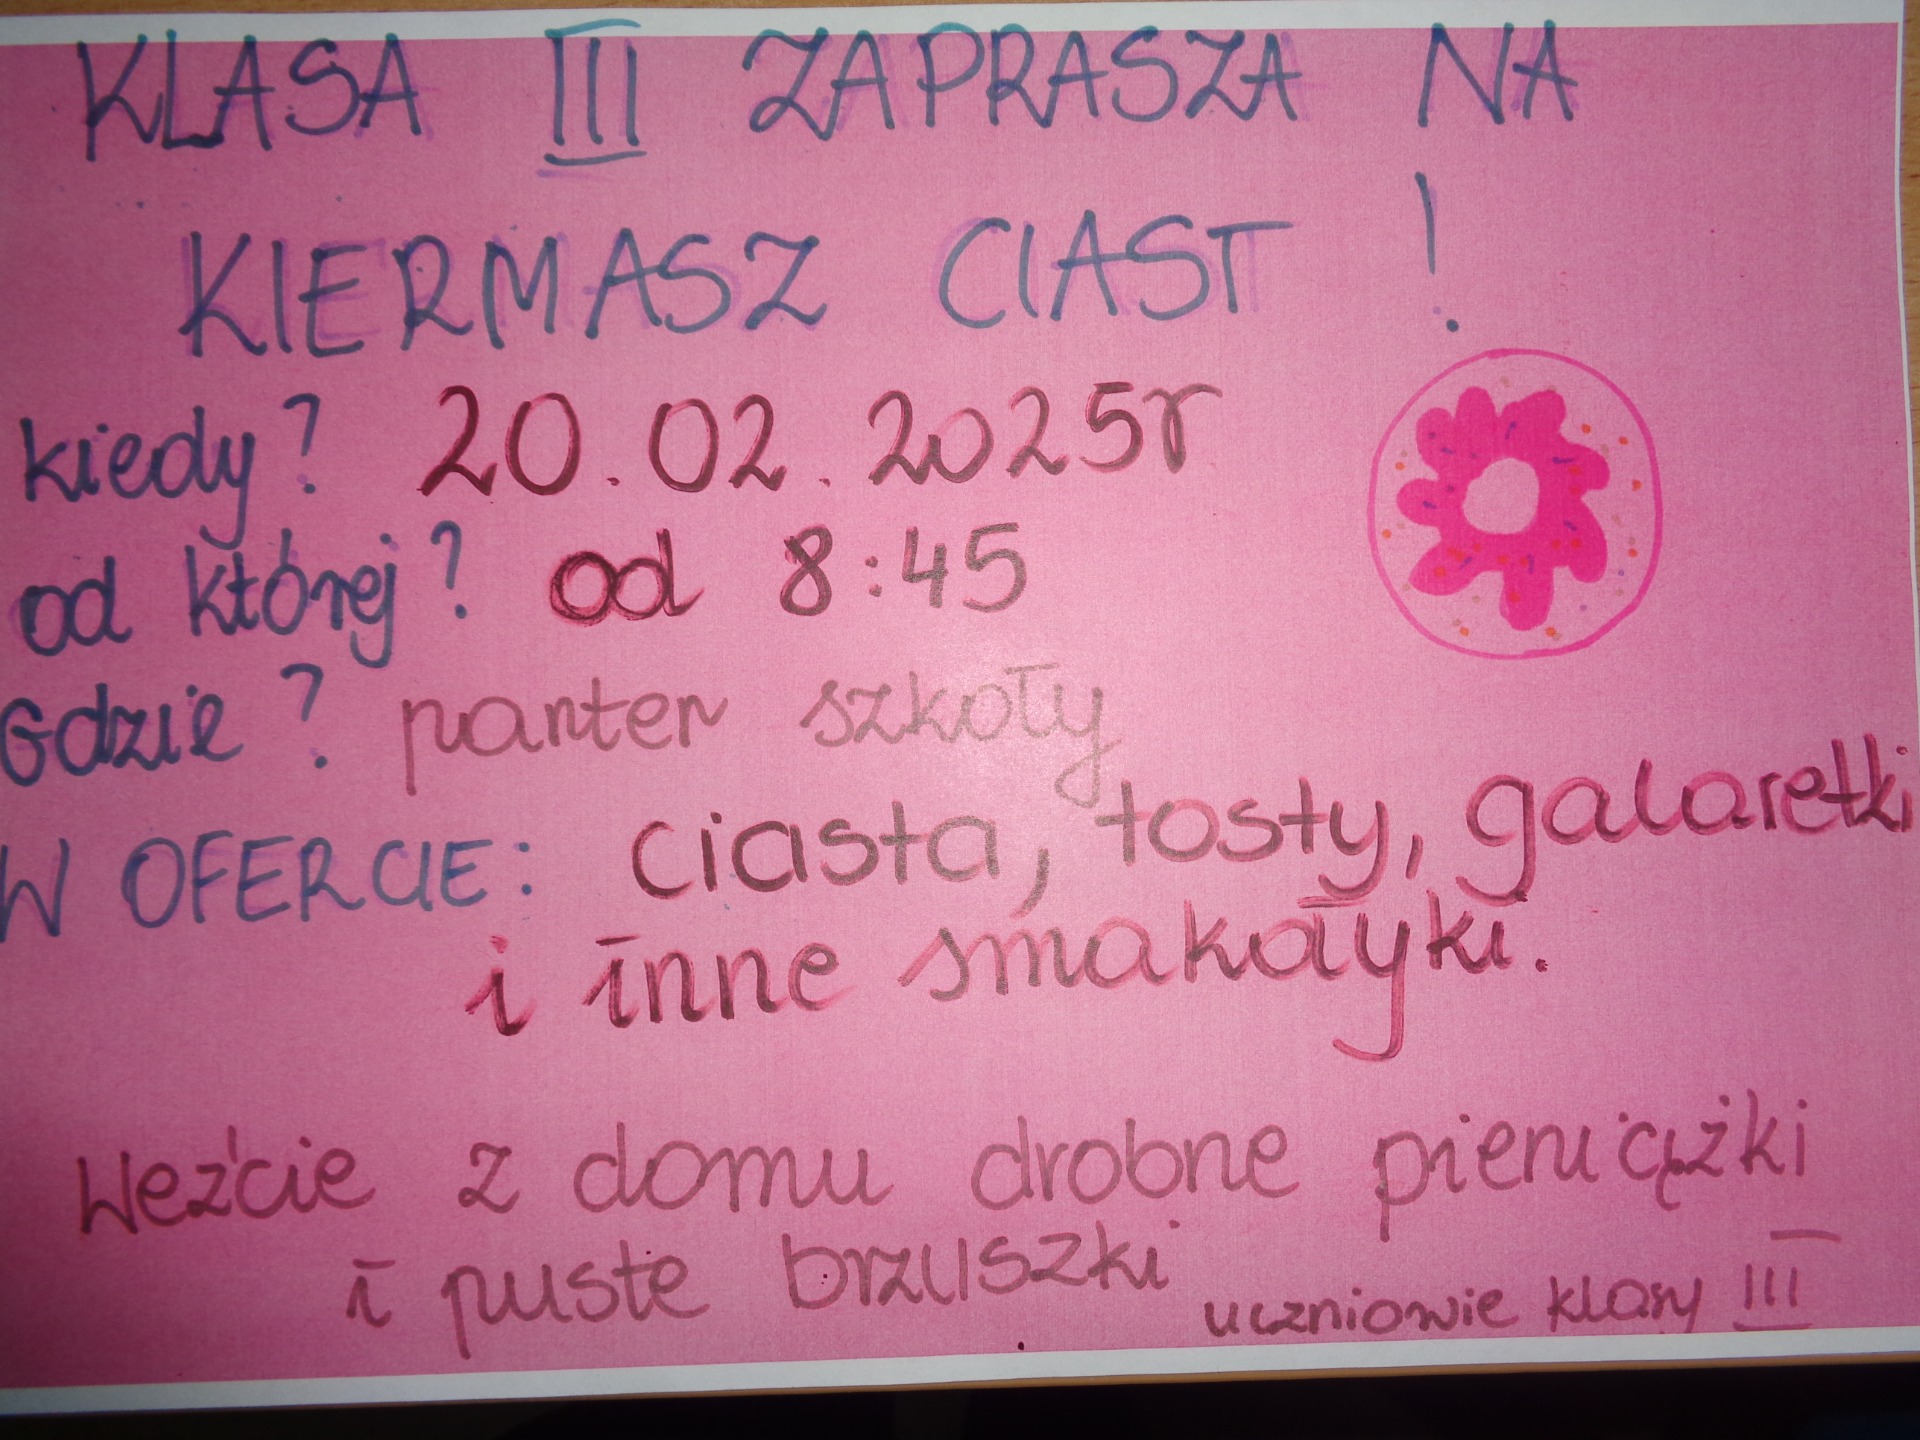 KLASA III ZAPRASZA NA
KIERMASZ CIAST !
kiedy? 20.02.2025r
od której? od 8:45
Gdzie? parter szkoły
W OFERCIE: ciasta, tosty, galaretki
i inne smakołyki.
Weźcie z domu drobne pieniążki
i puste brzuszki
uczniowie klasy III